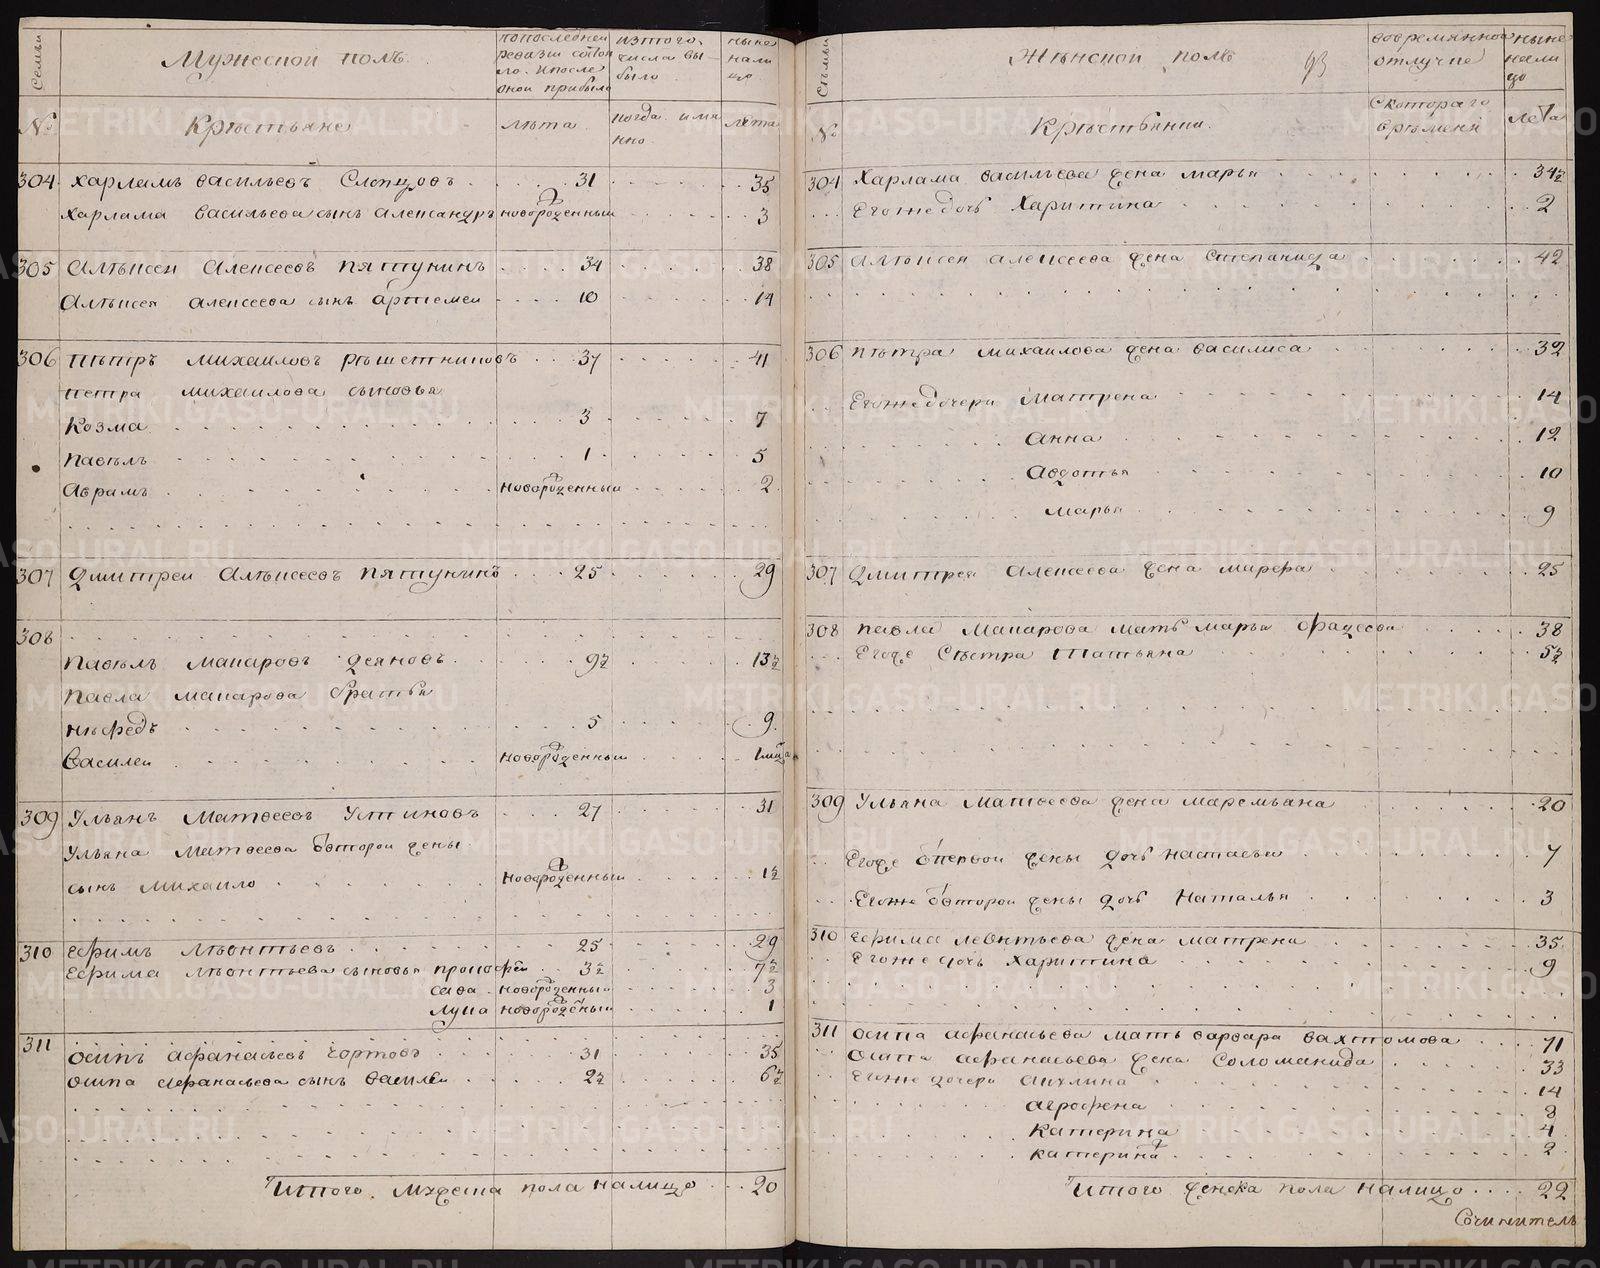 Семьи
Мужеской полъ
попоследней ревизи состояло. ипосле оной прибыло
изтого числа выбыло
ныне налицо
№
Крестьяне
лѣта
когда имянно
лѣта
304 Харламъ васильевъ Слепцовъ 31 35
Харлама васильева сынъ александръ новорожденный 3
305 Алѣксей Алексеевъ пятунинъ 34 38
Алѣксея алексеева сынъ артемей 10 14
306 Пѣтръ михаиловъ решетниковъ 37 41
петра михаилова сыновья
Козма 3 7
павѣлъ 1 5
Аврамъ новорожденный 2
307 Дмитрей Алѣксеевъ пятунинъ 25 29
308
павѣлъ макаровъ деяновъ 9½ 13½
павла макарова братья
нефедъ 5 9
василей новорожденный 1 мца
309 Ульянъ матвеевъ Устиновъ 27 31
Ульяна матвеева ѿвторой жены
сынъ михаило новорожденный 1½
310 Ефимъ лѣонтьевъ 25 29
Ефима лѣонтьева сыновья прокофей 3½ 7½
сава новорожденный 3
лука новорожденый 1
311
осипъ афанасьевъ чортовъ 31 35
осипа афанасьева сынъ василей 2½ 6½
Итого мужеска пола налицо 20
Семьи
Женской полъ 93
вовремянной отлучке
ныне налицо
№
Крестьянки
скотораго времени
лета
304 Харлама васильева жена марья 34½
Егожедочь Харитина 2
305 алѣксея алексеева жена степанида 42
306 пѣтра михаилова жена василиса 32
Егожедочери матрена 14
анна 12
авдотья 10
марья 9
307 Дмитрея Алексеева жена марфа 25
308 павла макарова мать марья фадеева 38
Егоже Сѣстра татьяна 5½
309 Ульяна матвеева жена маремьяна 20
Егоже ѿпервой жены дочь настасья 7
Егоже ѿвторой жены дочь Наталья 3
310 Ефима леонтьева жена матрена 35
Егоже дочь харитина 9
311 осипа афанасьева мать варвара вахтомова 71
осипа афанасьева жена соломанида 33
Егоже дочери акулина 14
агрофена 8
катерина 4
катерина 2
Итого женска пола налицо 22
Сочинитель
METRIKI.GASO-URAL.RU